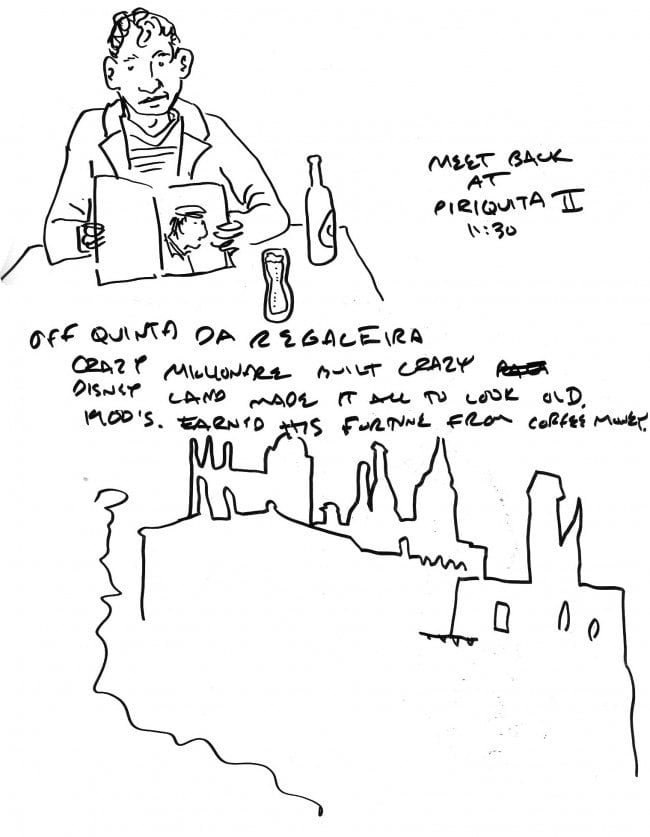 MEET BACK
AT
PIRIQUITA II
11:30
OFF QUINTA DA REGALEIRA
CRAZY MILLIONARE BUILT CRAZY
DISNEY LAND MADE IT ALL TO LOOK OLD.
1900'S. EARN'D HIS FORTUNE FROM COFFEE MONEY.